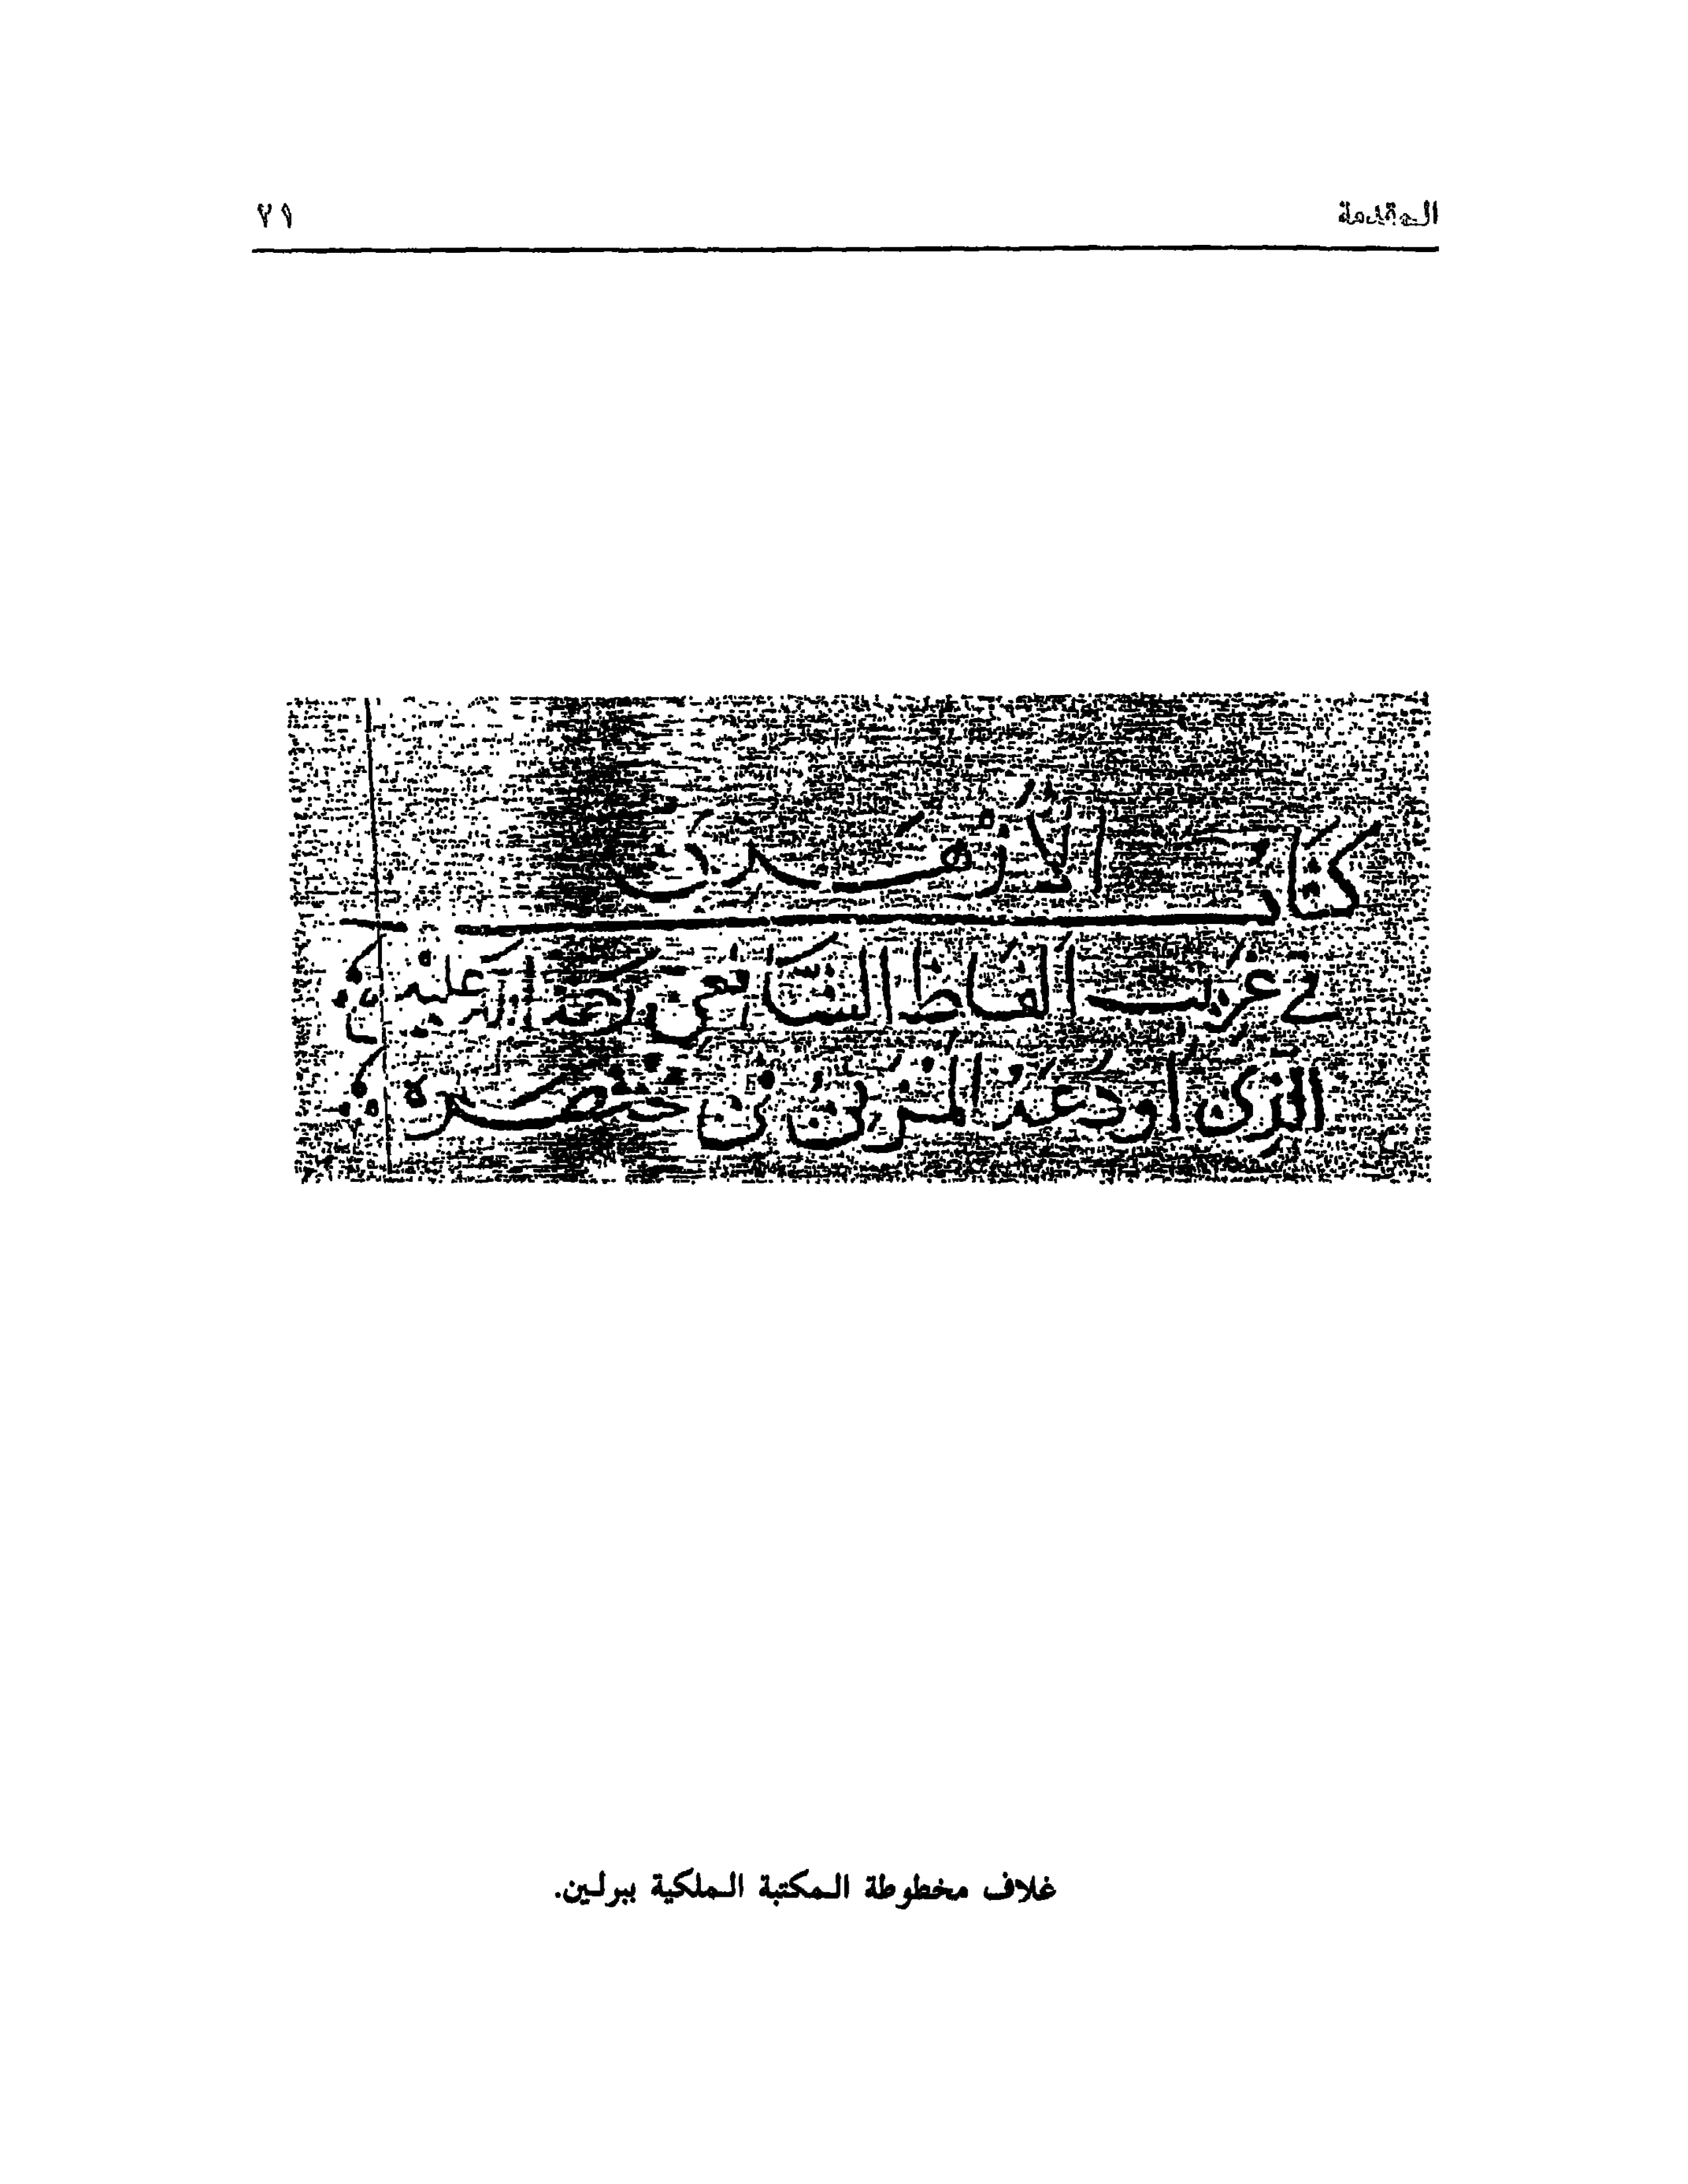 المقدمة ٢١
كتاب الأزهرى
فى غريب ألفاظ الشافعى رحمة الله عليه
الذى أودعه المزنى فى مختصره
غلاف مخطوطة المكتبة الملكية ببرلين.